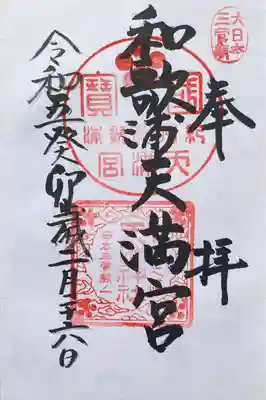 大日本
三菅廟
奉拝
和歌浦天満宮
日本三菅廟ノ一
令和五癸卯歳二月二十六日